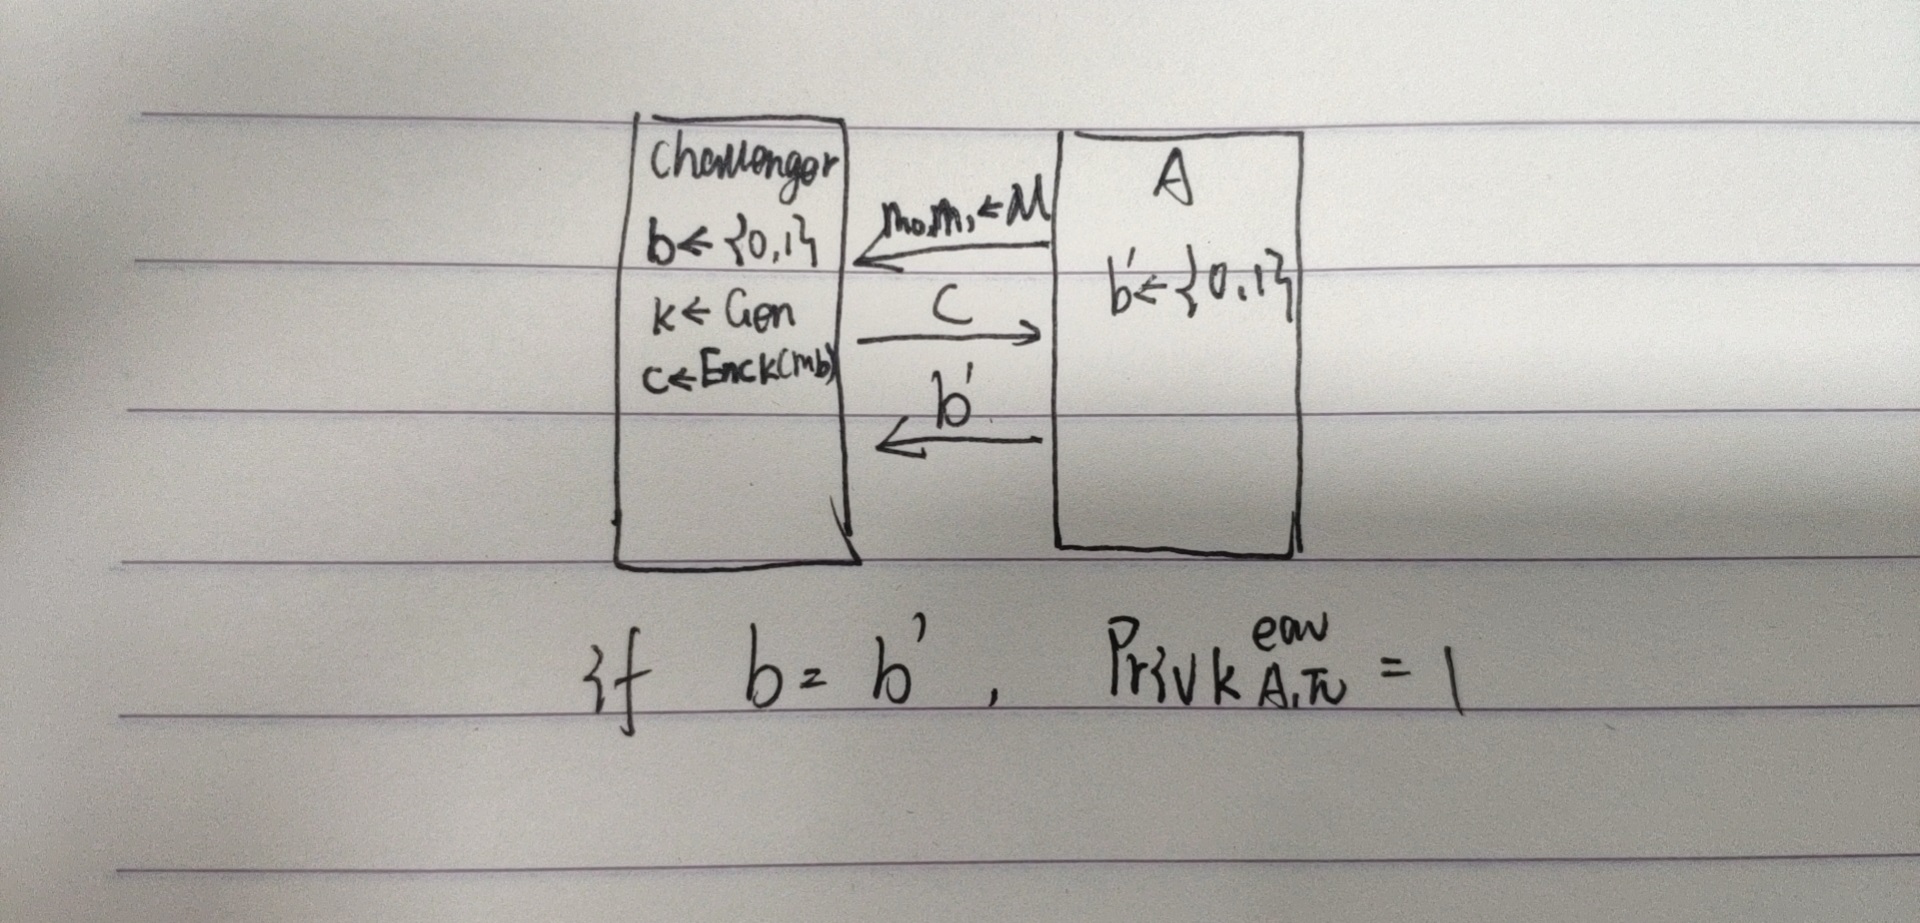 Challenger
b ← {0,1}
k ← Gen
c ← Enck(mb)
m₀,m₁ ← M
C
b'
A
b' ← {0,1}
if b = b', PrivK^eav_A,π = 1